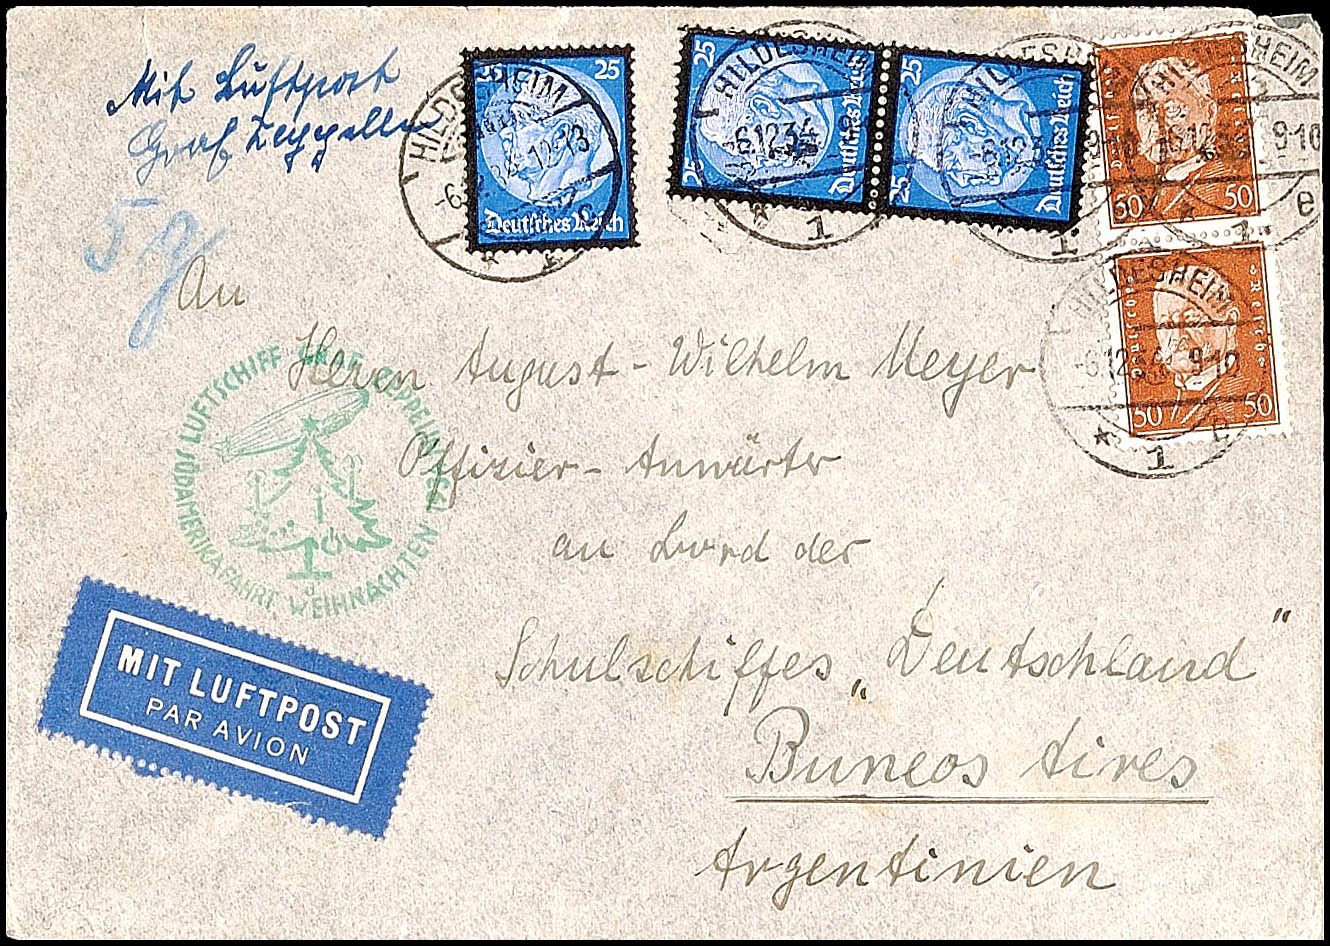 Mit Luftpost
Graf Zeppelin
5 g
25 25
Deutsches Reich
HILDESHEIM
-6.12.34
1
25
25
Deutsches Reich
HILDESHEIM
-6.12.34
1
25
25
Deutsches Reich
HILDESHEIM
1
50 50
HILDESHEIM
9-10
e
1
Deutsches Reich
50 50
HILDESHEIM
-6.12.34 9-10
e
1
An
Herrn August-Wilhelm Meyer
Offizier-Anwärter
an Bord der
Schulschiffes „Deutschland"
Buneos Aires
Argentinien
LUFTSCHIFF GRAF ZEPPELIN
SÜDAMERIKAFAHRT WEIHNACHTEN 1934
MIT LUFTPOST
PAR AVION